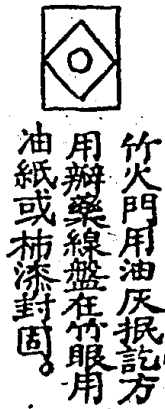 竹火門用油灰抿訖方
用辮藥線盤在竹眼用
油紙或柿漆封固。